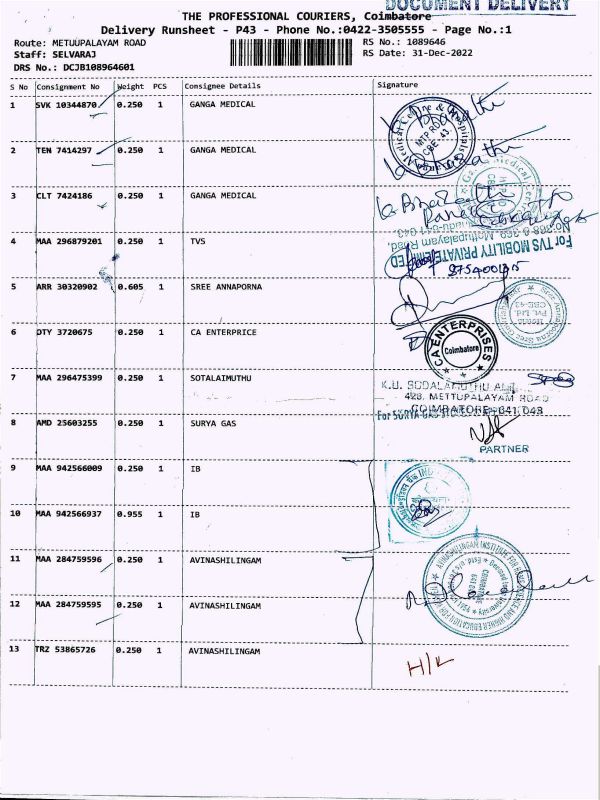 DOCUMENT DELIVERY
THE PROFESSIONAL COURIERS, Coimbatore
Delivery Runsheet - P43 - Phone No.:0422-3505555 - Page No.:1
Route: METUUPALAYAM ROAD
RS No.: 1089646
Staff: SELVARAJ
RS Date: 31-Dec-2022
DRS No.: DCJB108964601
S No Consignment No Weight PCS Consignee Details Signature
1 SVK 10344870 0.250 1 GANGA MEDICAL
2 TEN 7414297 0.250 1 GANGA MEDICAL
3 CLT 7424186 0.250 1 GANGA MEDICAL
4 MAA 296879201 0.250 1 TVS
For TVS MOBILITY PRIVATE LIMITED
5 ARR 30320902 0.605 1 SREE ANNAPORNA
6 DTY 3720675 0.250 1 CA ENTERPRICE
CA ENTERPRISES
Coimbatore
7 MAA 296475399 0.250 1 SOTALAIMUTHU
428, METTUPALAYAM ROAD
COIMBATORE-641 043
8 AMD 25603255 0.250 1 SURYA GAS
For SURYA GAS
PARTNER
9 MAA 942566009 0.250 1 IB
10 MAA 942566937 0.955 1 IB
11 MAA 284759596 0.250 1 AVINASHILINGAM
12 MAA 284759595 0.250 1 AVINASHILINGAM
13 TRZ 53865726 0.250 1 AVINASHILINGAM
H/K